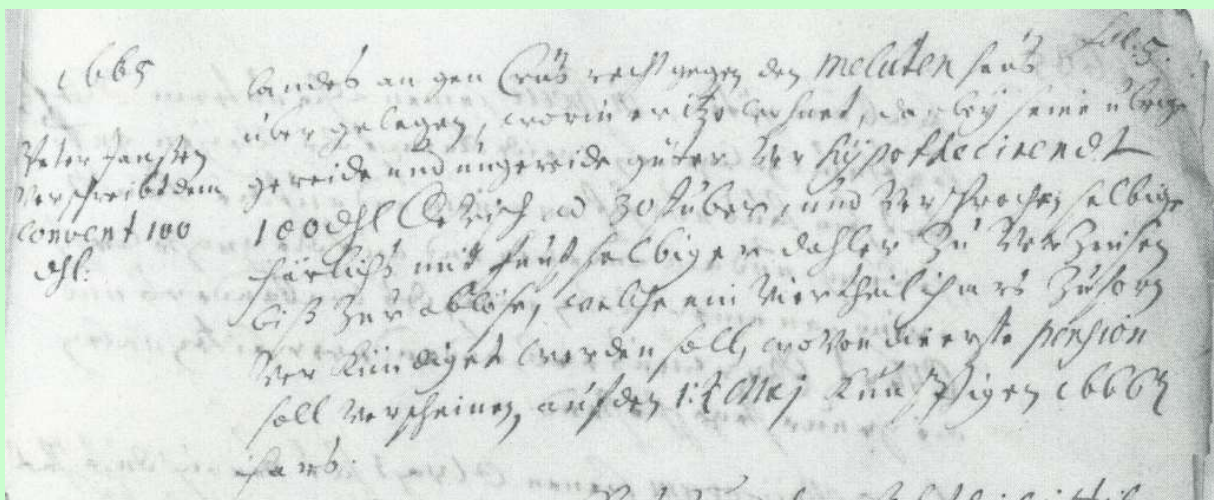 1665
fol. 5.
Peter Janssen
verschreibt dem
Convent 100
dhl:
landes an gen Creus recht gegen den Melaten haus
über gelegen, worin er itzo wohnet, dabey seine übrige
gereide und ungereide güter ver hÿpothecirendt
100 dhl Cölnisch ad 30 stüber, und versprochen selbige
järlichs mit fünf selbiger dahler zu verzinsen
biß zur ablöse, welche ein viertheil jahrs zuforn
verkündiget werden soll, wovon die erste pension
soll verscheinen, auf den 1: Maj künfftigen 1666
jahrs.